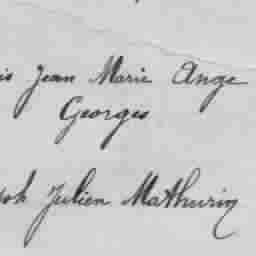 is Jean Marie Ange
Georges
ph Julien Mathurin